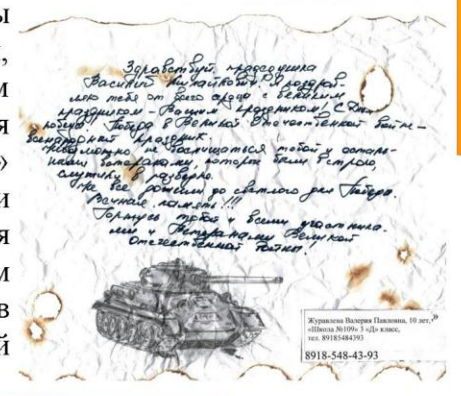 ы
,
м
я
»
и
я
м
в
й
Здравствуй, прадедушка
Василий Михайлович! Я поздрав
ляю тебя от всего сердца с великим
праздником - Вашим праздником! С Днем
Победы! Победа в Великой Отечественной войне -
всенародный праздник.
Невозможно не восхищаться тобой и осталь-
ными ветеранами, которые были в строю,
служили в
Не все дожили до светлого дня Победы.
Вечная память!!!
Горжусь тобой и всеми участника-
ми и Ветеранами Великой
Отечественной войны!
Журавлева Валерия Павловна, 10 лет,»
«Школа №109» 3 «Д» класс,
тел. 89185484393
8918-548-43-93